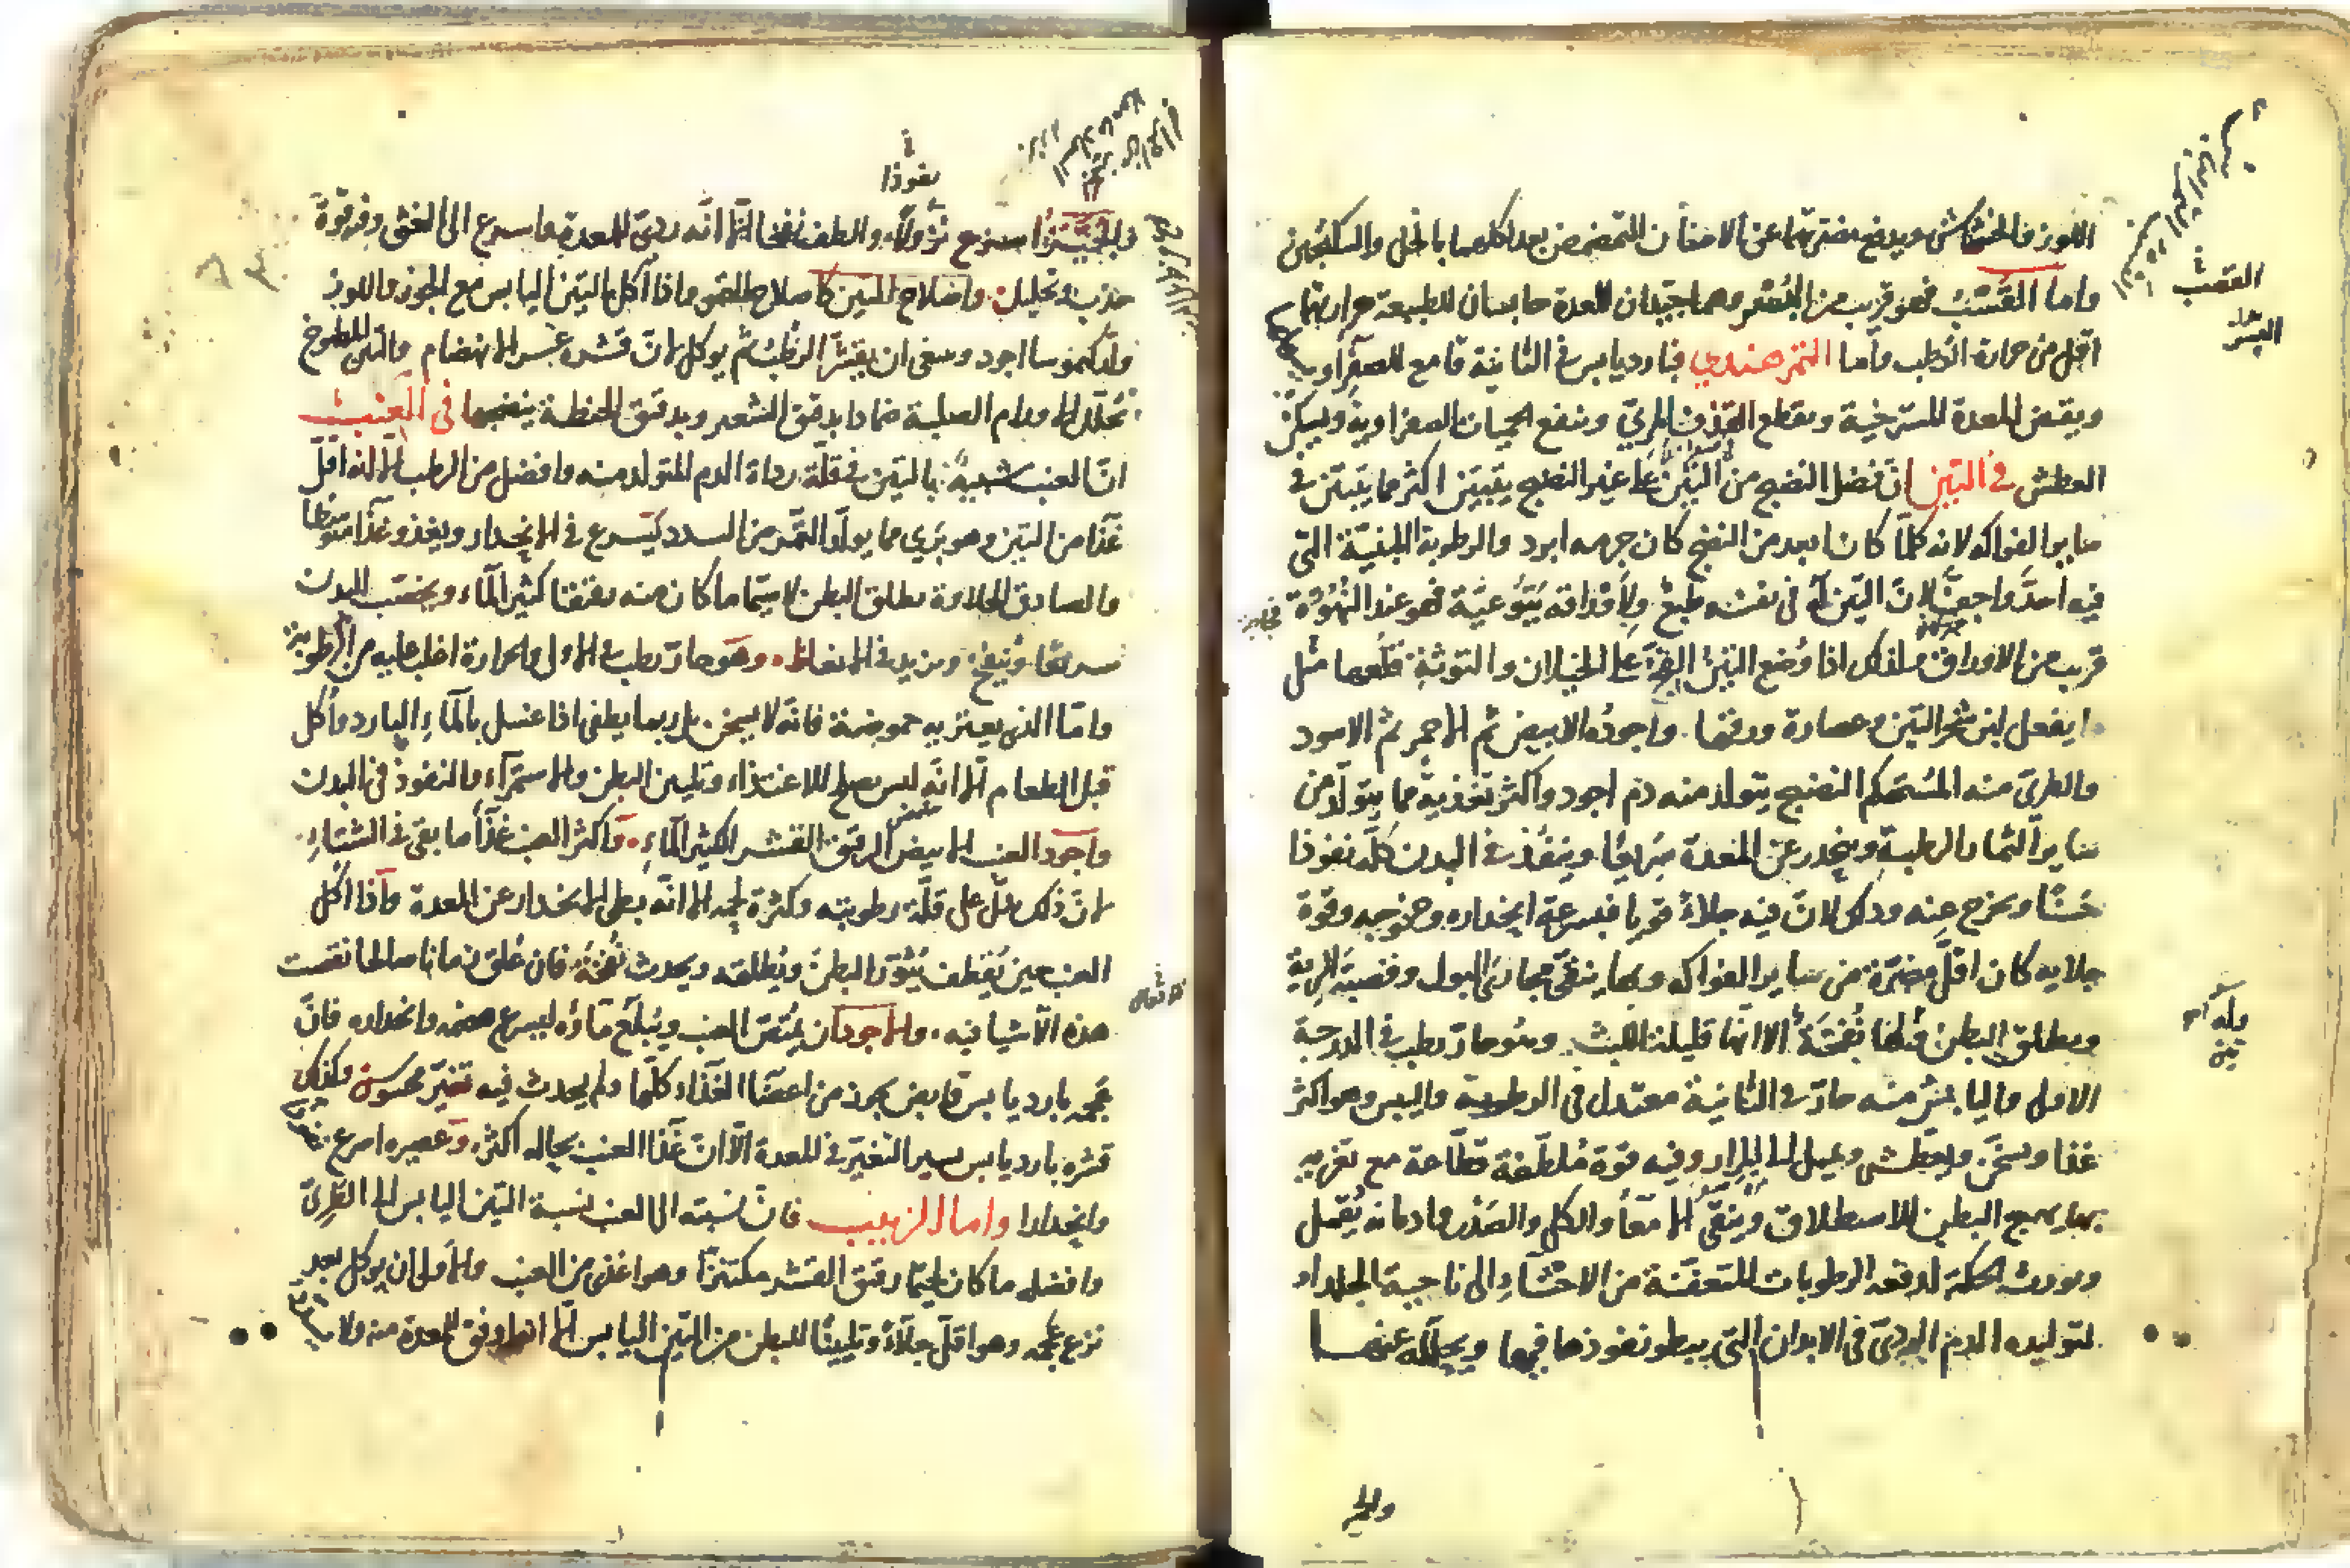 اللوز والخشخاش ويدفع مضرتهما عن الاسنان التمضمض بعد اكلهما بالخل والسكنجبين
واما القسب فهو قريب من البسر وهما جيدان للمعدة حابسان للطبيعة حرارتهما
اقل من حرارة الرطب واما التمر هندي فبارد يابس في الثانية قامع للصفراء
ويقبض المعدة المسترخية ويقطع القذف المري وينفع الحميات الصفراوية ويسكن
العطش في التين ان فضل النضيج من التين على غير النضيج يتبين اكثر مما يتبين في
ساير الفواكه لانه كلما كان ابعد من النضج كان جرمه ابرد والرطوبة اللبنية التي
فيه احد واجمع لان التين له في نفسه طبع ولاوراقه يتوعية فهو عند النهوة
قريب من الاوراق ولذلك اذا وضع التين الفج على الخيلان والتوثة قلعها مثل
ما يفعل لبن شجر التين وعصارة ورقها واجوده الابيض ثم الاحمر ثم الاسود
والطري منه المستحكم النضج يتولد منه دم اجود واكثر تغذية مما يتولد من
ساير الثمار الرطبة وينحدر عن المعدة سريعا وينفذ في البدن كله نفوذا
حسنا ويخرج عنه وذلك لان فيه جلاء قويا فبسرعة انحداره وخروجه وقوة
جلايه كان اقل مضرة من ساير الفواكه وبها ينقي مجاري البول وقصبة الرية
ويطلق البطن ولها نفخة الا انها قليلة اللبث وهو حار رطب في الدرجة
الاولى واليابس منه حار في الثانية معتدل في الرطوبة واليبس وهو اكثر
غذا ويسخن ويعطش ويميل الى المرار وفيه قوة ملطفة قطاعة مع تغرية
بها يهيج البطن للاستطلاق وينقي الامعا والكلى والصدر وادمانه يقمل
ويورث الحكة لدفعه الرطوبات المتعفنة من الاحشاء الى ناحية الجلد او
لتوليده الدم الردي في الابدان التي يبطو نفوذها فيها ويحلله عنها
القسب
البسر
والجميز
نفوذا
والجميز اسرع نزولا والطف نفخا الا انه ردي للمعدة واسرع الى الغثي وفي قوة
جذب وتحليل واصلاح التين كاصلاح التمر واذا اكل التين اليابس مع الجوز واللوز
ولد كيموسا اجود وينبغي ان يقشر الرطب ثم يوكل لان قشره عسر الانهضام والتين المطبوخ
يحلل الاورام الصلبة ضمادا بدقيق الشعير وبدقيق الحنطة ينضجها في العنب
ان العنب شبيه بالتين في قلة رداة الدم المتولد منه وافضل من الرطب الا انه اقل
غذا من التين وهو بري مما يولد التمر من السدد يسرع في الانحدار ويغذو غذا متوسطا
والصادق الحلاوة يطلق البطن لا سيما ما كان منه كثير الماء ويخصب البدن
سريعا وينفخ ويزيد في الانعاظ وهو حار رطب في الاولى والحرارة اغلب عليه من الرطوبة
واما الذي يعتريه حموضة فانه لا يسخن بل ربما يطفي اذا غسل بالماء البارد واكل
قبل الطعام الا انه ليس يصلح للاغتذاء وتليين البطن والاستمراء والنفوذ في البدن
واجود العنب الابيض الرقيق القشر الكثير الماء واكثر العنب غذا ما بقي في الشتاء
لان ذلك يدل على قلة رطوبته وكثرة لحمه الا انه بطي الانحدار عن المعدة واذا اكل
العنب حين يقطف يثور البطن ويطلقه ويحدث نفخة فان علق زمانا صالحا نقصت
هذه الاشيا فيه والاجود ان يمتص العنب ويبلع ماؤه ليسرع هضمه وانحداره فان
عجمه بارد يابس قابض يجوز من اعضا الغذاء كلها ولم يحدث فيه تغير محسوس وكذلك
قشره بارد يابس يسير التغير في المعدة الا ان غذا العنب بحاله اكثر وعصيره اسرع
وانحدارا واما الزبيب فان نسبته الى العنب نسبة التين اليابس الى الطري
وافضله ما كان لحيما رقيق القشر مكتنزا وهو اغذى من العنب والاولى ان يوكل بعد
نزع عجمه وهو اقل جلاء وتليينا للبطن من التين اليابس الا انه اوفق للمعدة منه ولا